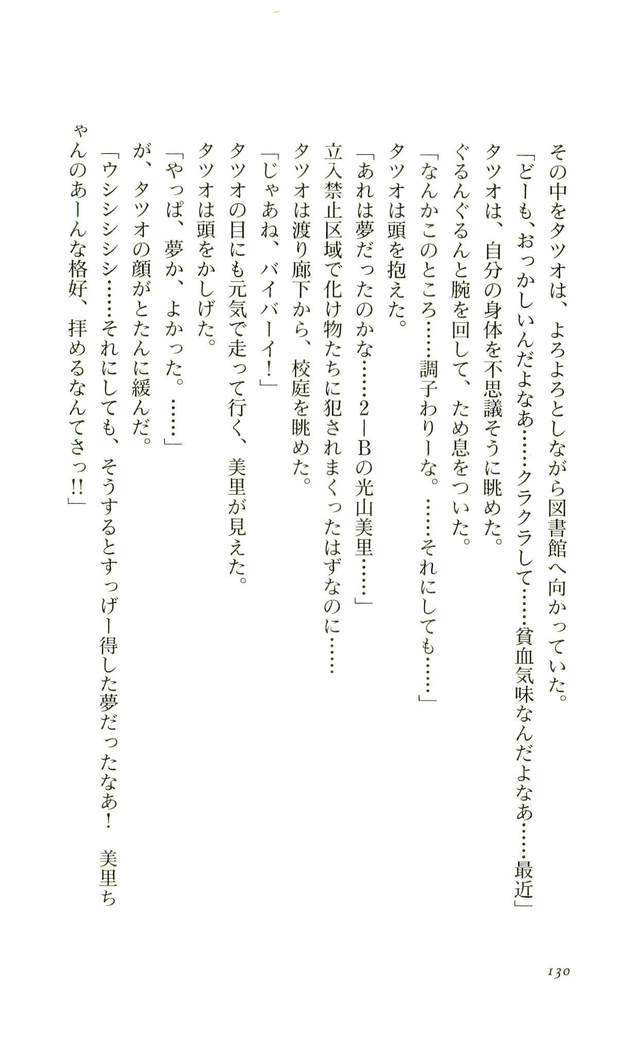 その中をタツオは、よろよろとしながら図書館へ向かっていた。
「どーも、おっかしいんだよなあ……クラクラして……貧血気味なんだよなあ……最近」
タツオは、自分の身体を不思議そうに眺めた。
ぐるんぐるんと腕を回して、ため息をついた。
「なんかこのところ……調子わりーな。……それにしても……」
タツオは頭を抱えた。
「あれは夢だったのかな……2—Bの光山美里……」
立入禁止区域で化け物たちに犯されまくったはずなのに……
タツオは渡り廊下から、校庭を眺めた。
「じゃあね、バイバーイ!」
タツオの目にも元気で走って行く、美里が見えた。
タツオは頭をかしげた。
「やっぱ、夢か、よかった。……」
が、タツオの顔がとたんに緩んだ。
「ウシシシシシ……それにしても、そうするとすっげー得した夢だったなあ!　美里ち
ゃんのあーんな格好、拝めるなんてさっ!!」
130